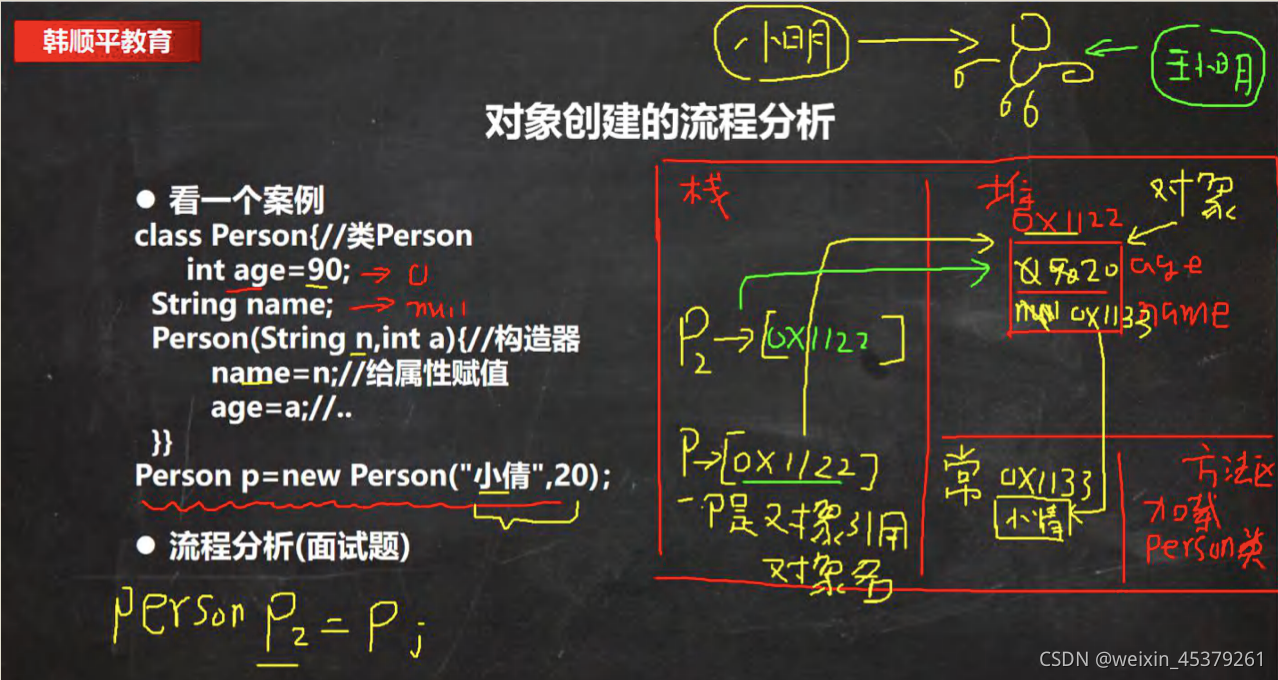 韩顺平教育
小明
王小明
对象创建的流程分析
● 看一个案例
class Person{//类Person
int age=90; → 0
String name; → null
Person(String n,int a){//构造器
name=n;//给属性赋值
age=a;//..
}}
Person p=new Person("小倩",20);
● 流程分析(面试题)
person P2 = P;
栈
P2→[0X1122]
P→[0X1122]
P是对象引用
对象名
堆
对象
0X1122
90 20 age
null 0X1133 name
常
0X1133
小倩
方法区
加载
person类
CSDN @weixin_45379261